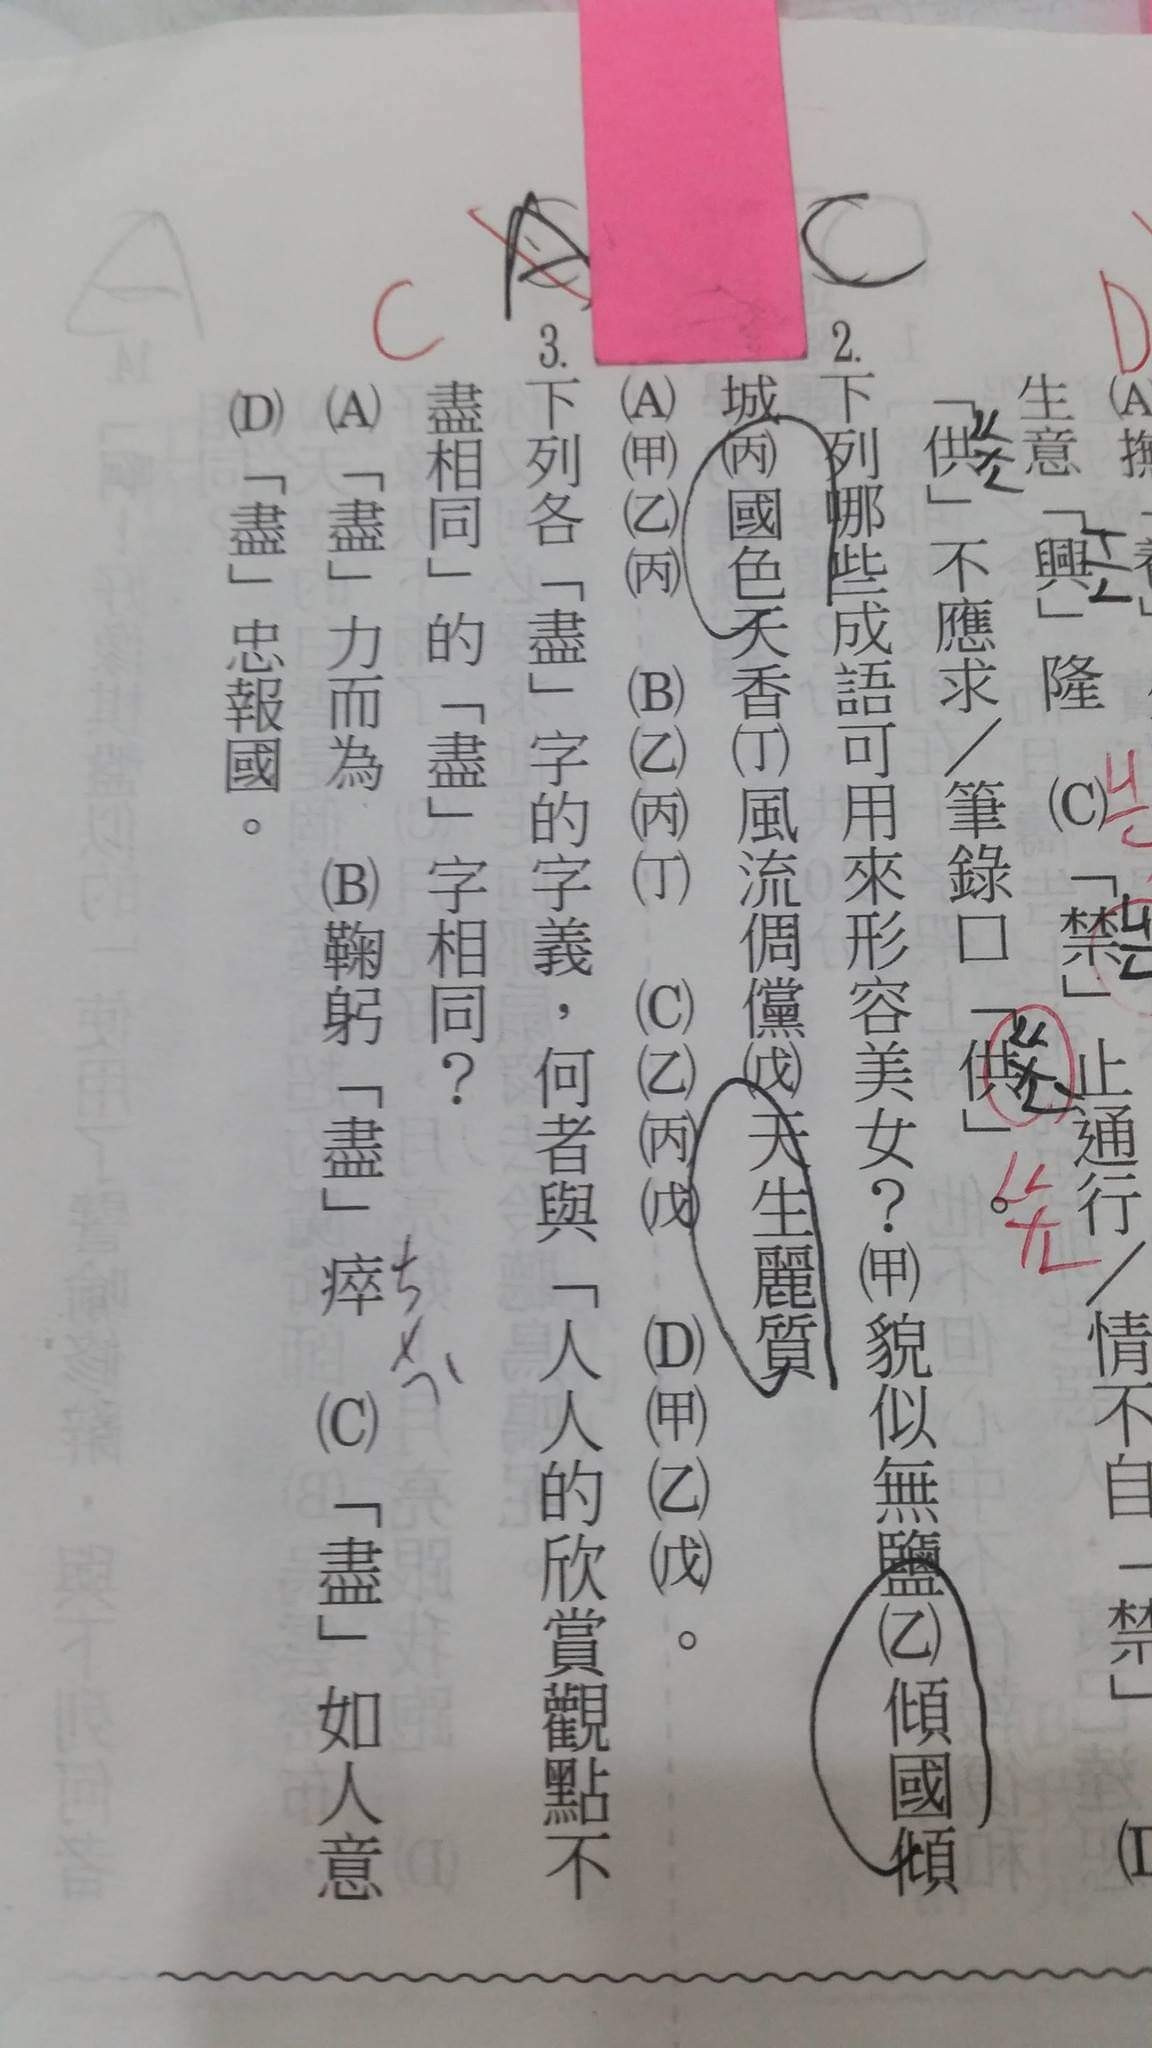 (A)撫
D
生意「興」隆 (C)「禁」止通行/情不自「禁」
ㄒㄧㄥ
「供」不應求/筆錄口「供」。
ㄍㄨㄥ
2.下列哪些成語可用來形容美女?㈙貌似無鹽㈚傾國傾
C
城㈛國色天香㈜風流倜儻㈝天生麗質
(A)㈙㈚㈛ (B)㈚㈛㈜ (C)㈚㈛㈝ (D)㈙㈚㈝。
3.下列各「盡」字的字義,何者與「人人的欣賞觀點不
A
盡相同」的「盡」字相同?
C
(A)「盡」力而為 (B)鞠躬「盡」瘁 (C)「盡」如人意
ㄘㄨㄟˋ
(D)「盡」忠報國。